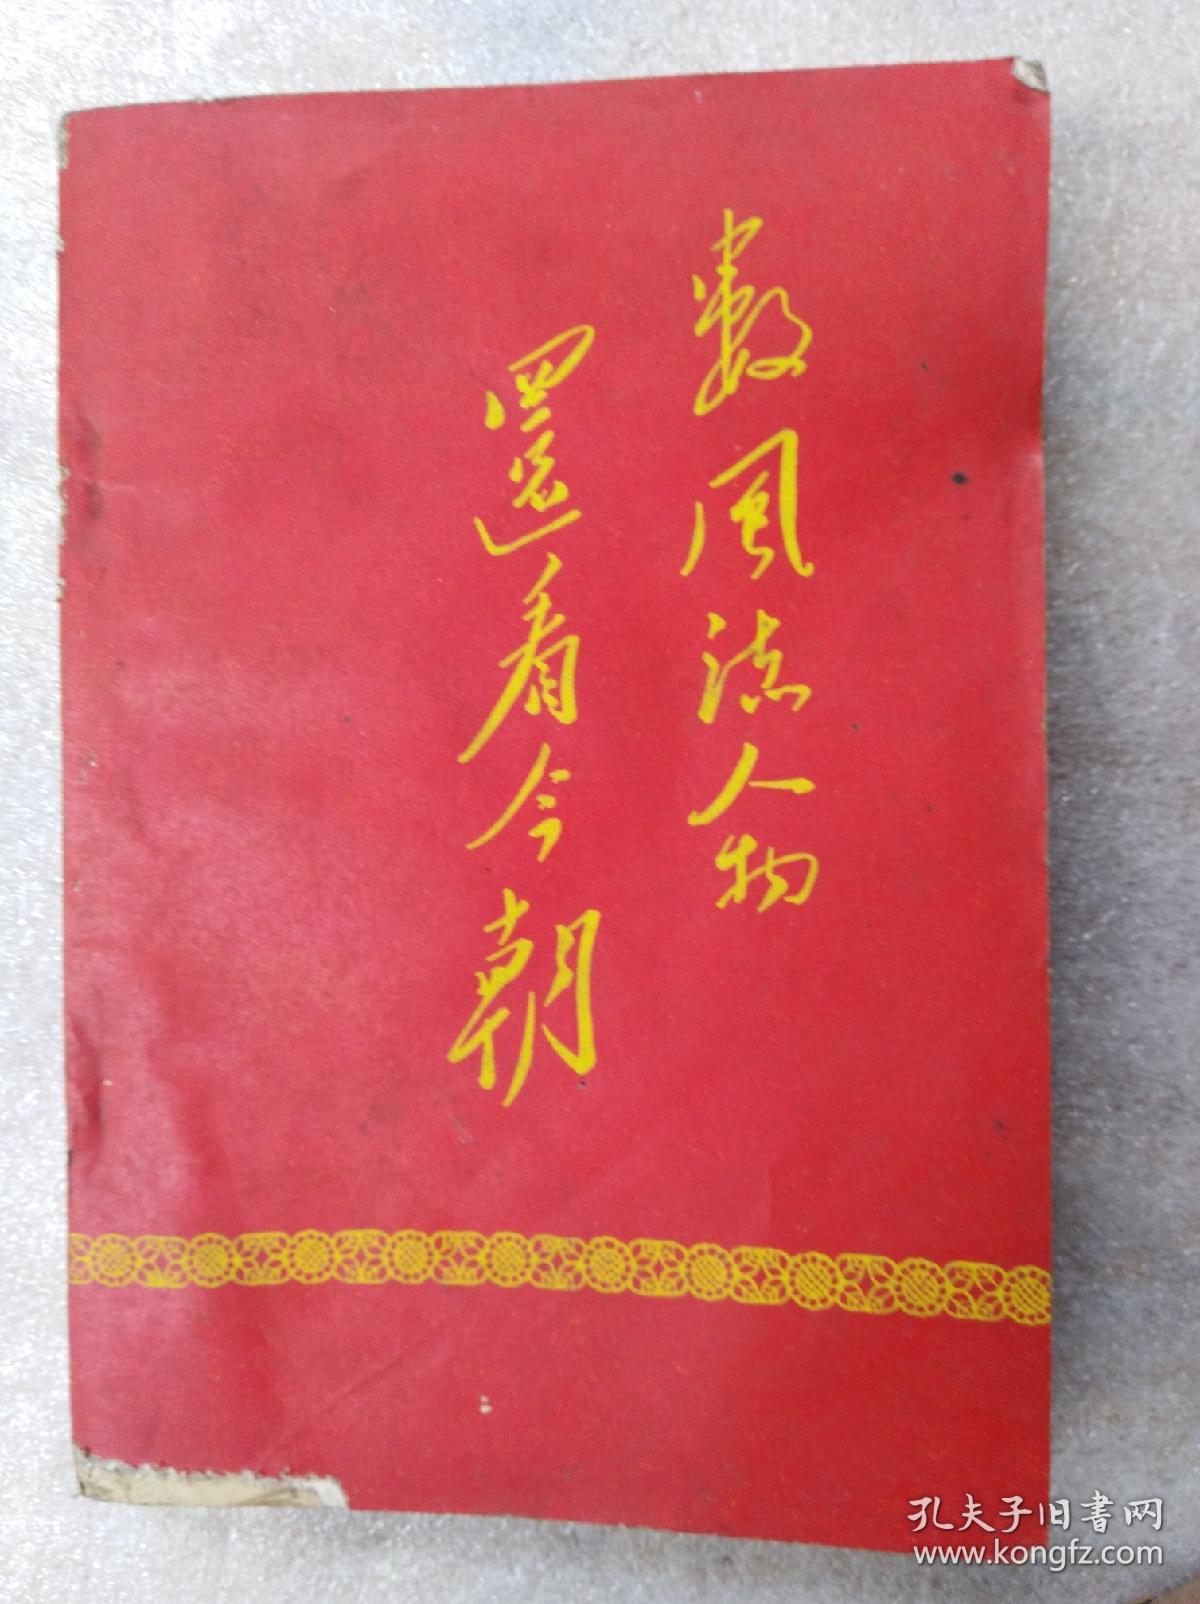 數風流人物
還看今朝
孔夫子旧书网
www.kongfz.com